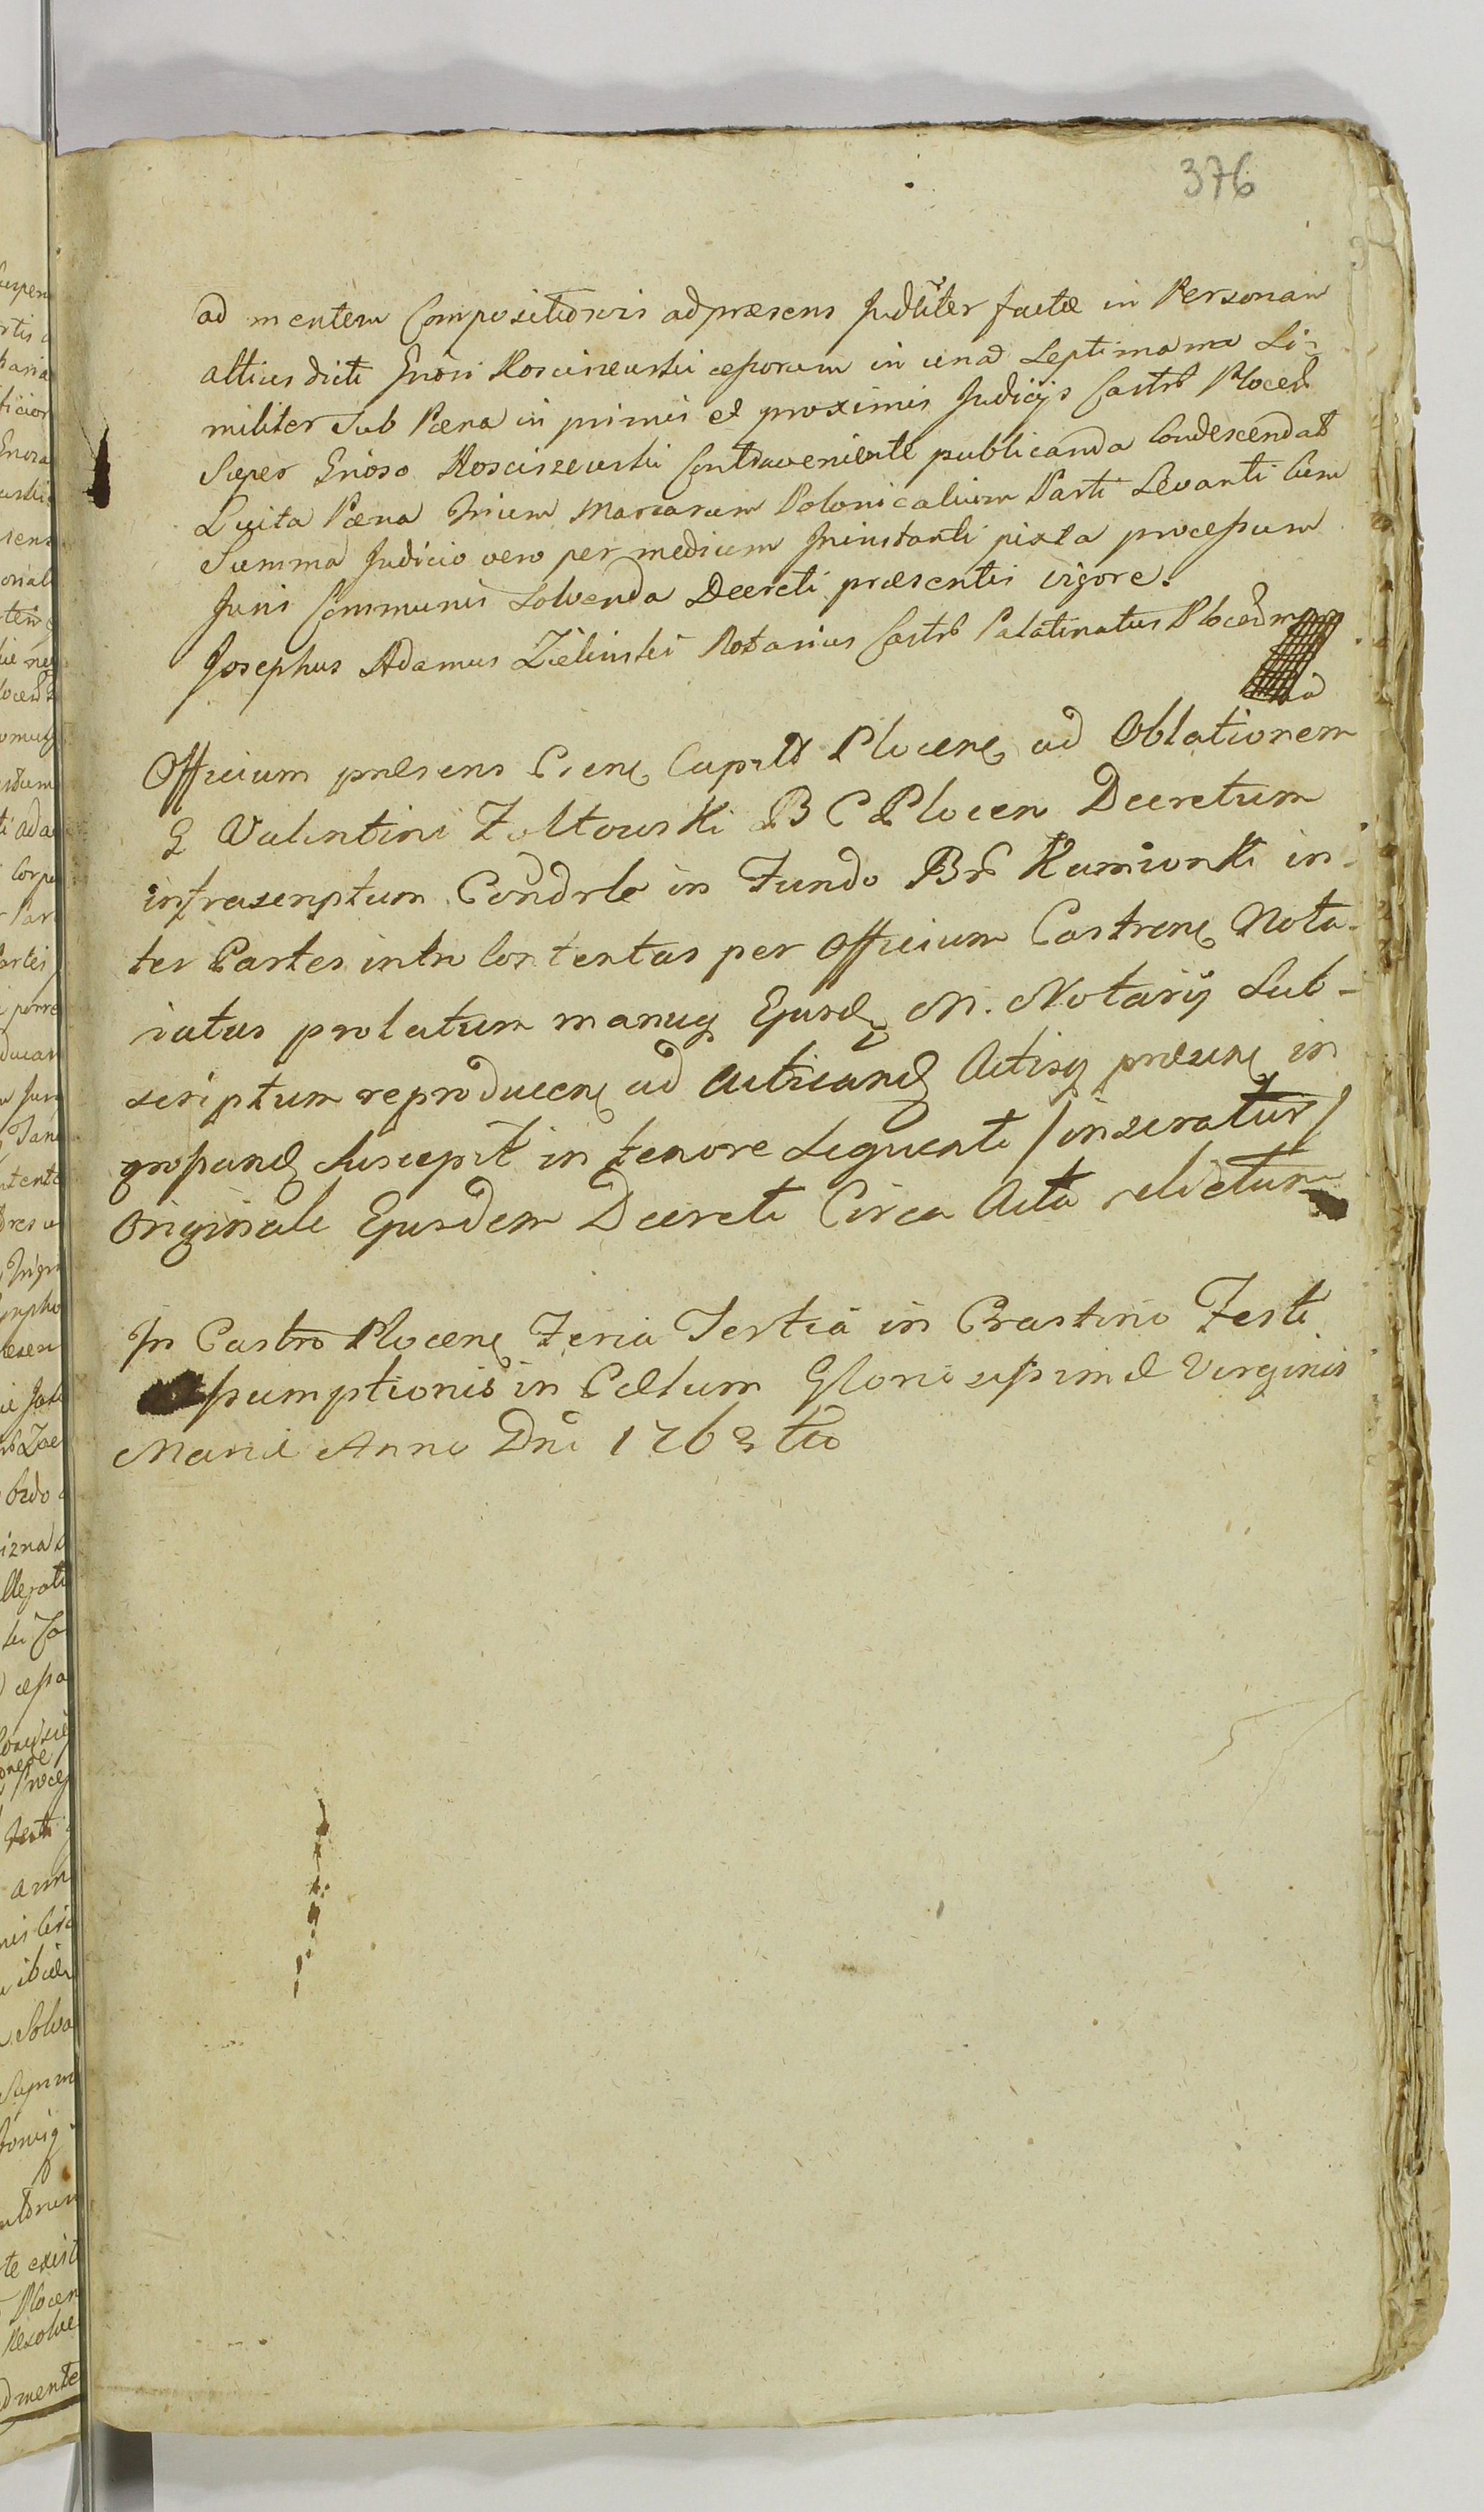 376
ad mentem Compositionis ad præsens Judliter factæ in Personam
altius dicti Gnosi Kosciszewski cessorum in una Septimana Si-
militer Sub Pæna in primis et proximis Judicijs Castr Plocen
Super Gnoso Kosciszewski Contraveniente publicanda Condescendat
Luita Pæna Trium Marcarum Polonicalium Parti Levanti Cum
Summa Judicio vero per medium Ininstanti juxta processum
Juris Communis Solvenda Decreti præsentis vigore.
Josephus Adamus Zieliński Notarius Castr Palatinatus Plocen mp
Officium præsens Cap Plocen ad Oblationem
G Valentini Zołtowski B C Plocen Decretum
infrascriptum Condrle in Fundo Br Kamionki in-
ter Partes intro Contentas per Officium Castren Nota-
riatus prolatum manuq Ejusd M. Notarij Sub-
scriptum reproducen ad acticand Actisq præsen in
grossand Suscepit in tenore Sequenti / inseratur /
Originale Ejusdem Decreti Circa Acta relictum
In Castro Plocen Feria Tertia in Crastino Festi
Assumptionis in Cælum Gloriosissimæ Virginis
Mariæ Anno Dni 1763tio